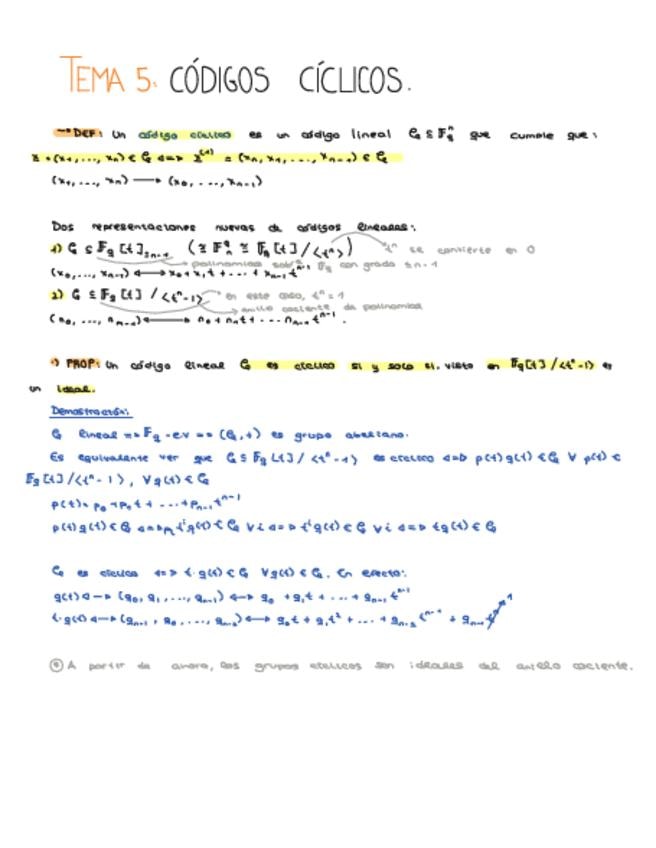 TEMA 5: CÓDIGOS CÍCLICOS.
→ DEF: Un código cíclico es un código lineal C ⊆ 𝔽q^n que cumple que:
x = (x1, ..., xn) ∈ C <=> x^(1) = (xn, x1, ..., xn-1) ∈ C
(x1, ..., xn) → (x0, ..., xn-1)
Dos representaciones nuevas de códigos lineales:
1) C ⊆ 𝔽q[t]≤n-1 (≅ 𝔽q^n ≅ 𝔽q[t]/<t^n>) t^n se convierte en 0
polinomios sobre 𝔽q con grado ≤n-1
(x0, ..., xn-1) ↔ x0 + x1t + ... + xn-1 t^n-1
2) C ⊆ 𝔽q[t]/<t^n-1> en este caso, t^n = 1
anillo cociente de polinomios
(n0, ..., nn-1) ↔ n0 + n1t + ... nn-1 t^n-1.
·) PROP: Un código lineal C es cíclico si y solo si, visto en 𝔽q[t]/<t^n-1> es
un ideal.
Demostración:
C lineal => 𝔽q-e.v => (C, +) es grupo abeliano.
Es equivalente ver que C ⊆ 𝔽q[t]/<t^n-1> es cíclico <=> p(t)g(t) ∈ C ∀ p(t) ∈
𝔽q[t]/<t^n-1>, ∀g(t) ∈ C
p(t) = p0 + p1t + ... + pn-1 t^n-1
p(t)g(t) ∈ C <=> pi t^i g(t) ∈ C ∀i <=> t^i g(t) ∈ C ∀i <=> tg(t) ∈ C
C es cíclico <=> t·g(t) ∈ C ∀g(t) ∈ C. En efecto:
g(t) ↔ (g0, g1, ..., gn-1) ↔ g0 + g1t + ... + gn-1 t^n-1
t·g(t) ↔ (gn-1, g0, ..., gn-2) ↔ g0t + g1t^2 + ... + gn-2 t^n-1 + gn-1 t^n 1
A partir de ahora, los grupos cíclicos son ideales del anillo cociente.